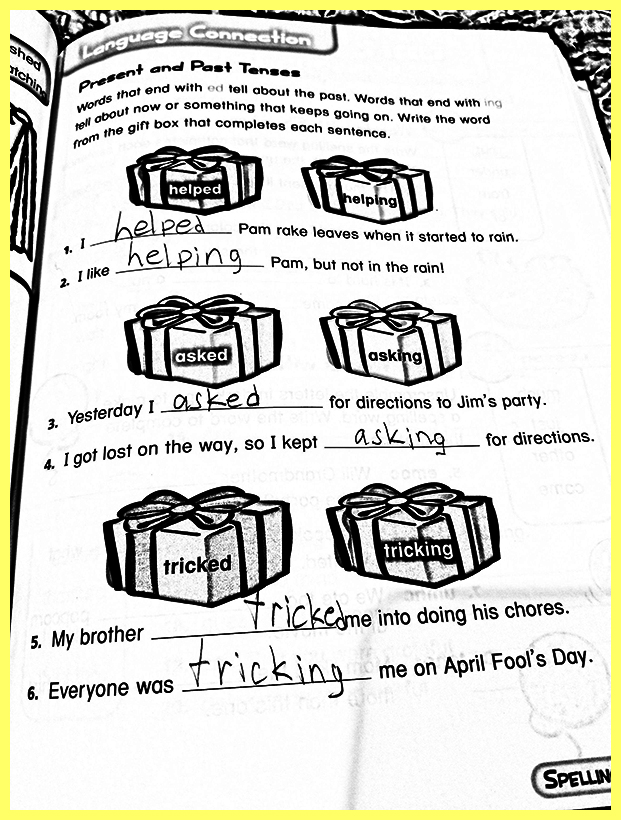 shed
atching
Language Connection
Present and Past Tenses
Words that end with ed tell about the past. Words that end with ing
tell about now or something that keeps going on. Write the word
from the gift box that completes each sentence.
helped helping
1. I helped Pam rake leaves when it started to rain.
2. I like helping Pam, but not in the rain!
asked asking
3. Yesterday I asked for directions to Jim's party.
4. I got lost on the way, so I kept asking for directions.
tricked tricking
5. My brother tricked me into doing his chores.
6. Everyone was tricking me on April Fool's Day.
SPELLIN